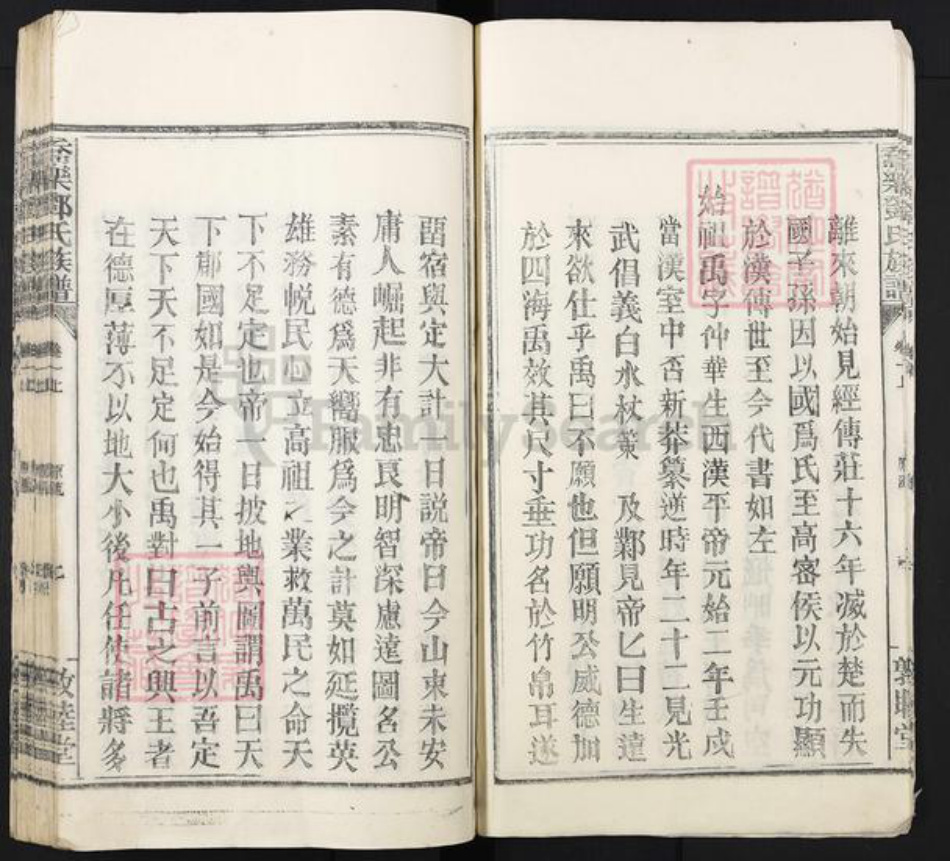 離來朝始見經傳莊十六年滅於楚而失
國子孫因以國爲氏至高密侯以元功顯
於漢傳世至今代書如左
始祖禹字仲華生西漢平帝元始二年壬戌
當漢室中否新莽纂逆時年二十二見光
武倡義白水杖策 及鄴見帝乚曰生遠
來欲仕乎禹曰不願也但願明公威德加
於四海禹效其尺寸垂功名於竹帛耳遂
畱宿與定大計一日説帝曰今山東未安
庸人崛起非有忠良明智深慮遠圖名公
素有德爲天嚮服爲今之計莫如延攬英
雄務悅民心立高祖之業救萬民之命天
下不足定也帝一日披地輿圖謂禹曰天
下郡國如是今始得其一子前言以吾定
天下天不足定何也禹對曰古之興王者
在德厚薄不以地大小後凡任使諸將多
鄧氏族譜
卷上
敦睦堂
FamilySearch